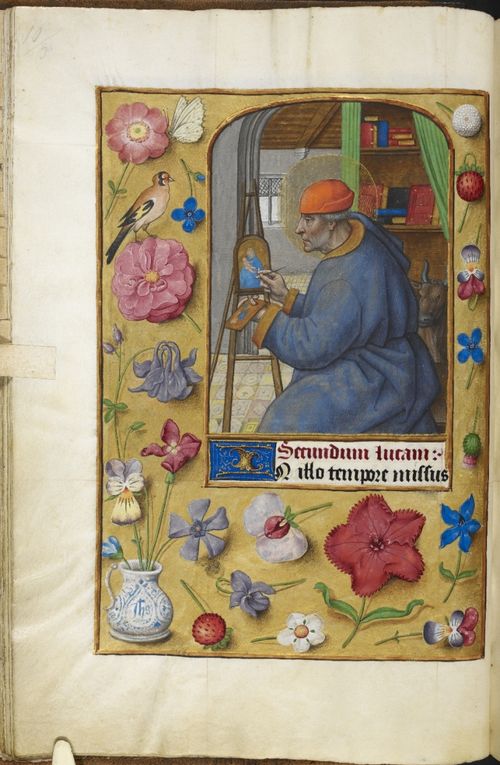 Secundum lucam:
IN illo tempore missus
ihs